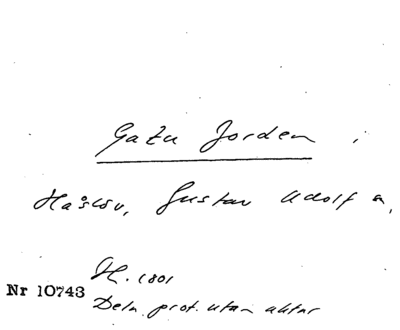 Gatu Jorden i
Håslöv, Gustav Adolf s,
H. 1801
Nr 10743
Deln. prot. utan aktar